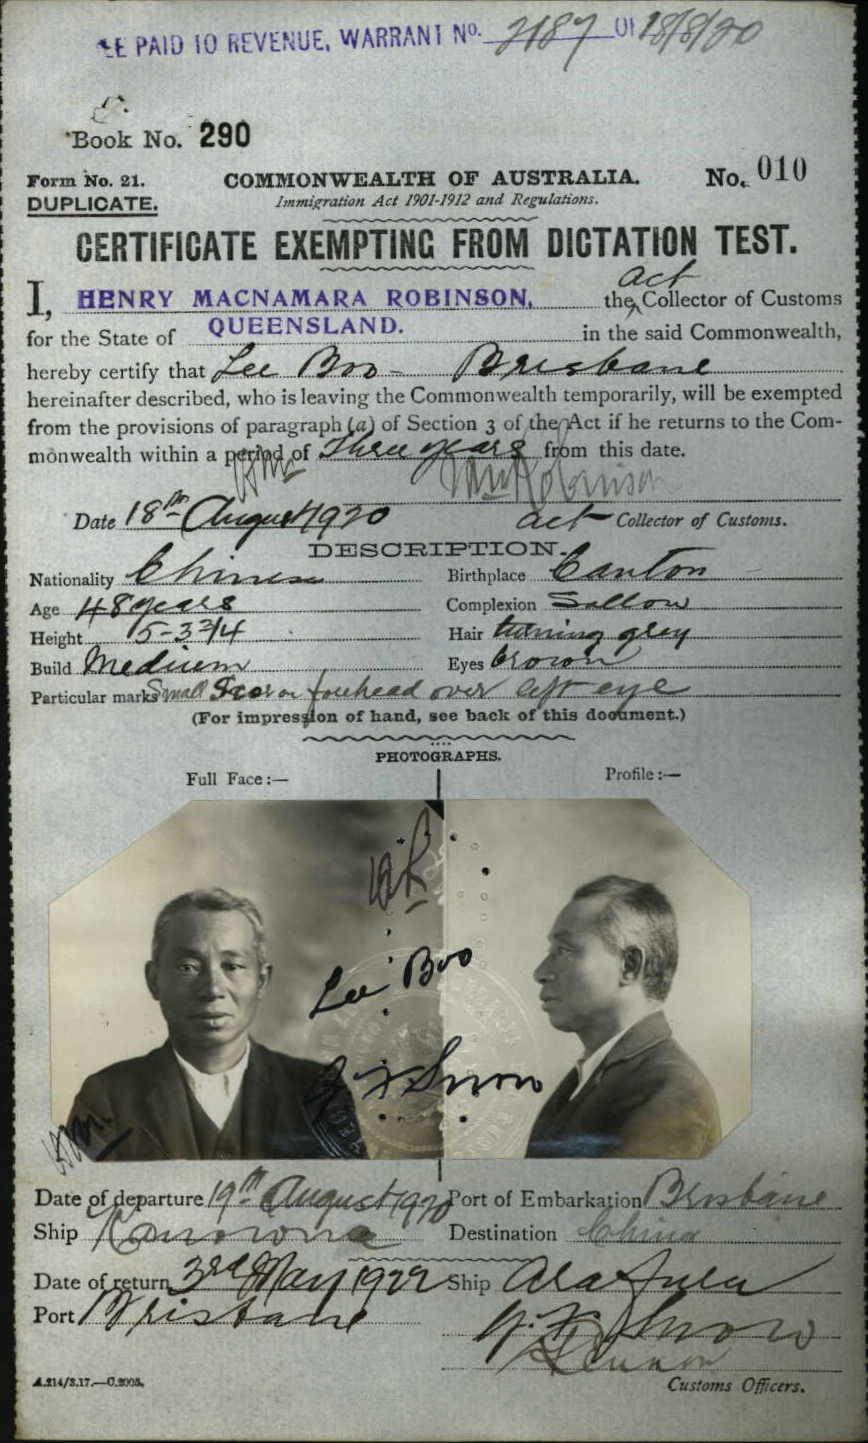 PAID TO REVENUE, WARRANT No. 2187 OF 18/8/20
Book No. 290
Form No. 21. COMMONWEALTH OF AUSTRALIA. No. 010
DUPLICATE. Immigration Act 1901-1912 and Regulations.
CERTIFICATE EXEMPTING FROM DICTATION TEST.
I, HENRY MACNAMARA ROBINSON, the act Collector of Customs
for the State of QUEENSLAND. in the said Commonwealth,
hereby certify that Lee Boo - Brisbane
hereinafter described, who is leaving the Commonwealth temporarily, will be exempted
from the provisions of paragraph (a) of Section 3 of the Act if he returns to the Com-
monwealth within a period of Three years from this date.
Date 18th August 1920 act Collector of Customs.
DESCRIPTION.
Nationality Chinese Birthplace Canton
Age 48 years Complexion Sallow
Height 5-3 3/4 Hair turning grey
Build Medium Eyes brown
Particular marks Small Scar on forehead over left eye
(For impression of hand, see back of this document.)
PHOTOGRAPHS.
Full Face:— Profile:—
Lee Boo
Snow
Date of departure 19th August 1920 Port of Embarkation Brisbane
Ship Kanowna Destination China
Date of return 3rd May 1922 Ship Arafura
Port Brisbane
Snow
Customs Officers.
A.214/3.17.—C.2005.